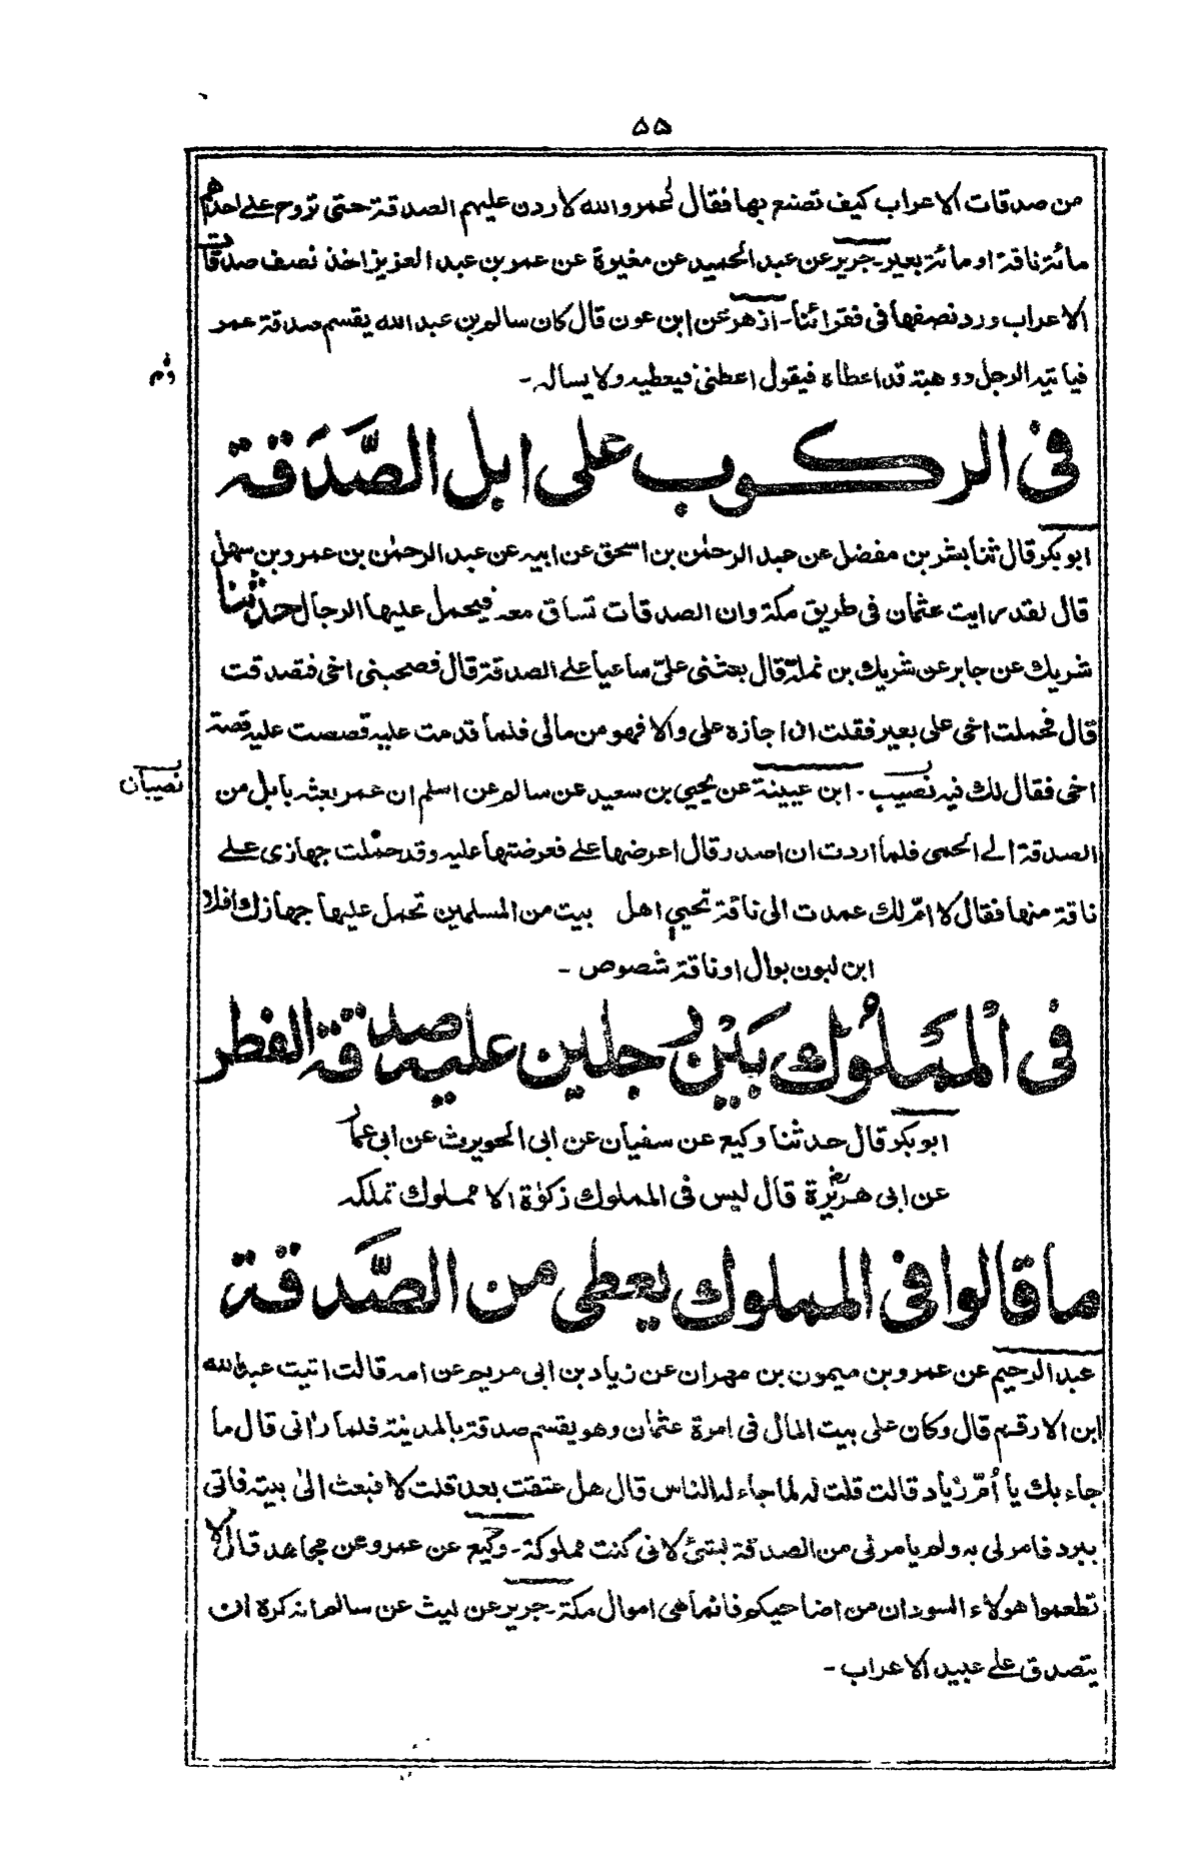 ۵۵
من صدقات الاعراب كيف تصنع بها فقال عمر والله لاردن عليهم الصدقة حتى تروح على احدهم
مائة ناقة او مائة بعير - جرير عن عبد الحميد عن مغيرة عن عمر بن عبد العزيز اخذ نصف صدقات
الاعراب ورد نصفها فى فقرائنا - ازهر عن ابن عون قال كان سالم بن عبد الله يقسم صدقة عمر
فياتيه الرجل ذو هبتة قد اعطاه فيقول اعطنى فيعطيه ولا يساله -
فى الركوب على ابل الصَّدَقة
ابو بكر قال ثنا بشر بن مفضل عن عبد الرحمٰن بن اسحق عن ابيه عن عبد الرحمٰن بن عمرو بن سهل
قال لقد رايت عثمان فى طريق مكة وان الصدقات تساق معه فيحمل عليها الرجال حدثنا
شريك عن جابر عن شريك بن نملة قال بعثنى علىّ ساعيا على الصدقة قال فصحبنى اخى فتصدقت
قال فحملت اخى على بعير فقلت ان اجازه على والا فهو من مالى فلما قدمت عليه قصصت عليه قصة
نصيبان
اخى فقال لك فيه نصيب - ابن عيينة عن يحيى بن سعيد عن سالم عن اسلم ان عمر بعثه بابل من
الصدقة الى الحمى فلما اردت ان اصدر قال اعرضها على فعرضتها عليه وقد حملت جهازى على
ناقة منها فقال لا امّ لك عمدت الى ناقة تحيى اهل بيت من المسلمين تحمل عليها جهازك افلا
ابن لبون بوال او ناقة شصوص -
فى الْمَملُوك بَيْن رجلين عليه صدقة الفطر
ابو بكر قال حدثنا وكيع عن سفيان عن ابى الحويرث عن ابى عمار
عن ابى هريرة قال ليس فى المملوك زكوٰة الا مملوك تملكه
ما قالوا فى المملوك يعطى من الصَّدقة
عبد الرحيم عن عمرو بن ميمون بن مهران عن زياد بن ابى مريم عن امه قالت اتيت عبد الله
ابن الارقم قال وكان على بيت المال فى امرة عثمان وهو يقسم صدقة بالمدينة فلما رانى قال ما
جاء بك يا أمّ زياد قالت قلت له لما جاء له الناس قال هل عتقت بعد قلت لا فبعث الى بيته فاتى
ببرد فامر لى به ولم يامر لى من الصدقة بشئ لانى كنت مملوكة - وكيع عن عمر وعن مجاهد قال لا
تطعموا هولاء السودان من اضاحيكم فانما هى اموال مكة - جرير عن ليث عن سالم انه كره ان
يتصدق على عبيد الاعراب -